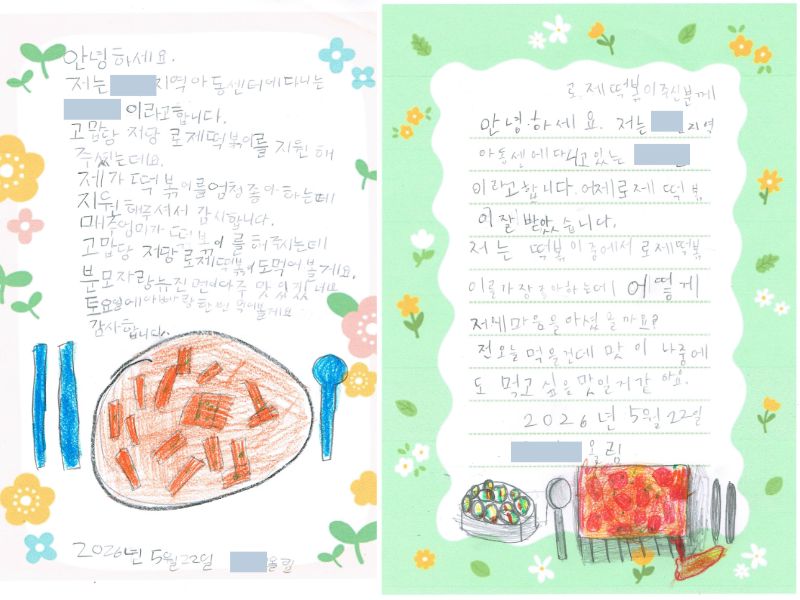 안녕하세요.
저는 지역아동센터에다니는
이라고합니다.
고맙당 저당 로제떡볶이를 지원 해
주셨는데요.
제가 떡볶이를엄청좋아하는데
지원해주셔서 감사합니다.
매주엄마가 떡볶이를 해주시는데
고맙당 저당로제떡볶이도먹어볼게요.
분모자랑뉴진면이아주 맛있겠네요
토요일에아빠랑한번 먹어볼게요
감사합니다.
2026년 5월22일 올림
로제떡볶이주신분께
안녕하세요. 저는 지역
아동센에다니고있는
이라고합니다.어제로제 떡볶
이잘받았습니다.
저는 떡볶이중에서 로제떡볶
이를가장좋아하는데 어떻게
저에마음을아셨을까요?
전오늘먹을건데 맛이 나중에
도 먹고싶을맛일거같아요.
2026년 5월 22일
올림